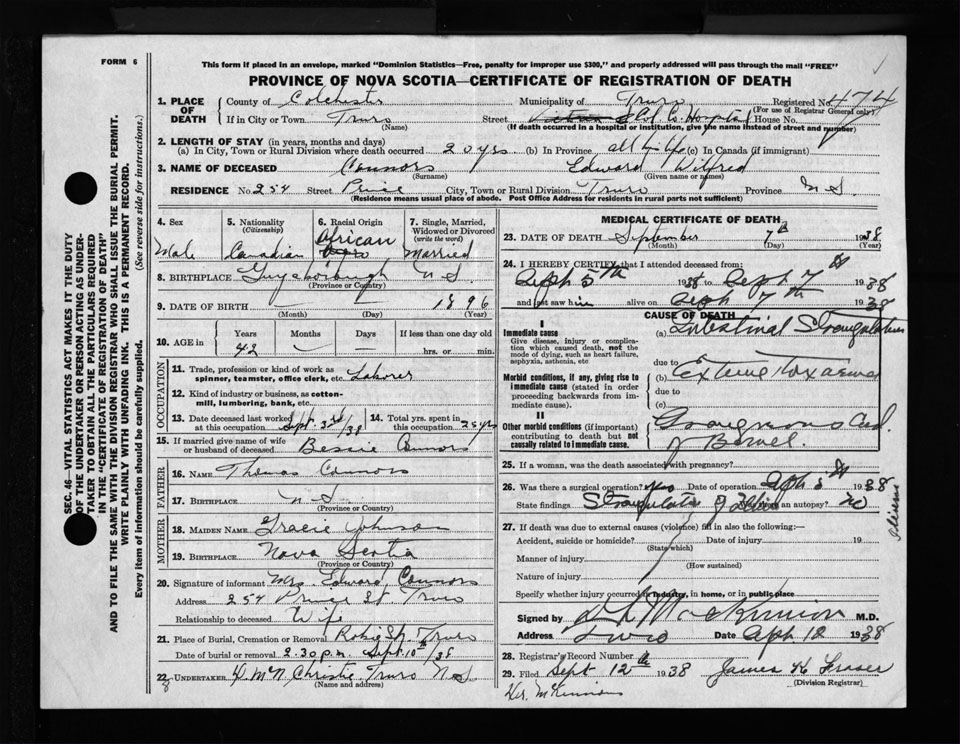 FORM 6
This form if placed in an envelope, marked "Dominion Statistics—Free, penalty for improper use $300," and properly addressed will pass through the mail "FREE"
PROVINCE OF NOVA SCOTIA—CERTIFICATE OF REGISTRATION OF DEATH
SEC. 46—VITAL STATISTICS ACT MAKES IT THE DUTY
OF THE UNDERTAKER OR PERSON ACTING AS UNDER-
TAKER TO OBTAIN ALL THE PARTICULARS REQUIRED
IN THE "CERTIFICATE OF REGISTRATION OF DEATH"
AND TO FILE THE SAME WITH THE DIVISION REGISTRAR WHO SHALL ISSUE THE BURIAL PERMIT.
WRITE PLAINLY WITH UNFADING INK. THIS IS A PERMANENT RECORD.
Every item of information should be carefully supplied. (See reverse side for instructions.)
1. PLACE OF DEATH
County of Colchester Municipality of Truro Registered No. 474
(For use of Registrar General only)
If in City or Town Truro Street Col. Co. Hospital House No.
(Name) (If death occurred in a hospital or institution, give the name instead of street and number)
2. LENGTH OF STAY (in years, months and days)
(a) In City, Town or Rural Division where death occurred 20 yrs (b) In Province all his life (c) In Canada (if immigrant)
3. NAME OF DECEASED Connors Edward Wilfred
(Surname) (Given name or names)
RESIDENCE No. 254 Street Prince City, Town or Rural Division Truro Province N S.
(Residence means usual place of abode. Post Office Address for residents in rural parts not sufficient)
4. Sex Male
5. Nationality (Citizenship) Canadian
6. Racial Origin African
7. Single, Married, Widowed or Divorced (write the word) Married
8. BIRTHPLACE Guysborough N S.
(Province or Country)
9. DATE OF BIRTH — — 1896
(Month) (Day) (Year)
10. AGE in Years Months Days If less than one day old
42 — — hrs. or min.
OCCUPATION
11. Trade, profession or kind of work as spinner, teamster, office clerk, etc. Laborer
12. Kind of industry or business, as cotton-mill, lumbering, bank, etc.
13. Date deceased last worked at this occupation Sept. 3rd/38
14. Total yrs. spent in this occupation 25 yrs
15. If married give name of wife or husband of deceased Bessie Connors
FATHER
16. NAME Thomas Connors
17. BIRTHPLACE N.S.
(Province or Country)
MOTHER
18. MAIDEN NAME Gracie Johnson
19. BIRTHPLACE Nova Scotia
(Province or Country)
20. Signature of informant Mrs. Edward Connors
Address 254 Prince St Truro
Relationship to deceased Wife
21. Place of Burial, Cremation or Removal Robie St. Truro
Date of burial or removal 2.30 p.m. Sept. 10th/38
22. UNDERTAKER D. McN. Christie Truro N.S.
(Name and address)
8
MEDICAL CERTIFICATE OF DEATH
23. DATE OF DEATH September 7th 1938
(Month) (Day) (Year)
24. I HEREBY CERTIFY that I attended deceased from:
Sept 5th 1938 to Sept 7th 1938
and last saw him alive on Sept 7th 1938
CAUSE OF DEATH
I
Immediate cause
Give disease, injury or complication which caused death, not the mode of dying, such as heart failure, asphyxia, asthenia, etc
(a) Intestinal Strangulation
due to
Morbid conditions, if any, giving rise to immediate cause (stated in order proceeding backwards from immediate cause).
(b) Extreme Toxaemia
due to
(c)
II
Other morbid conditions (if important) contributing to death but not causally related to immediate cause.
Gangrenous
of Bowel.
25. If a woman, was the death associated with pregnancy?
26. Was there a surgical operation? yes Date of operation Sept 5th 1938
State findings Strangulation of Ilium an autopsy? no
27. If death was due to external causes (violence) fill in also the following:—
Accident, suicide or homicide? Date of injury 19
(State which)
Manner of injury
(How sustained)
Nature of injury
Specify whether injury occurred in industry, in home, or in public place
Signed by MacKinnon M.D.
Address Truro Date Sept 12 1938
28. Registrar's Record Number
29. Filed Sept 12th 1938 James K Fraser
(Division Registrar)
Dr. McKinnon